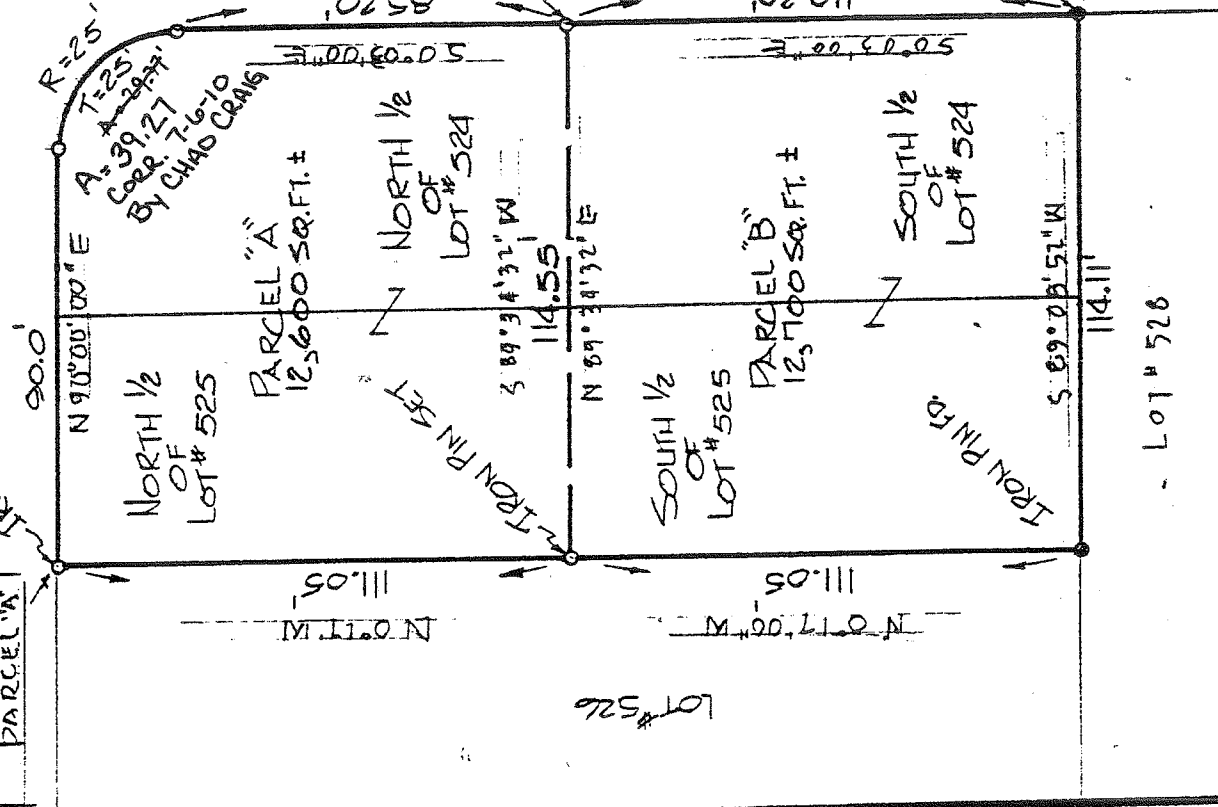 R=25'
T=25'
A=29.77'
A=39.27
CORR. 7-6-10
By CHAD CRAIG
85.20'
110.20'
S 0°03'00" E
S 0°03'00" E
90.0'
N 90°00'00" E
NORTH 1/2
OF
LOT # 524
PARCEL "A"
12,600 SQ.FT. ±
NORTH 1/2
OF
LOT # 525
S 89°34'32" W
114.55'
N 89°34'32" E
SOUTH 1/2
OF
LOT # 524
PARCEL "B"
12,700 SQ.FT. ±
SOUTH 1/2
OF
LOT # 525
S 89°08'52" W
114.11'
IRON PIN SET
IRON PIN FD.
LOT # 528
111.05'
N 0°17' W
111.05'
N 0°17'00" W
LOT # 526
PARCEL "A"